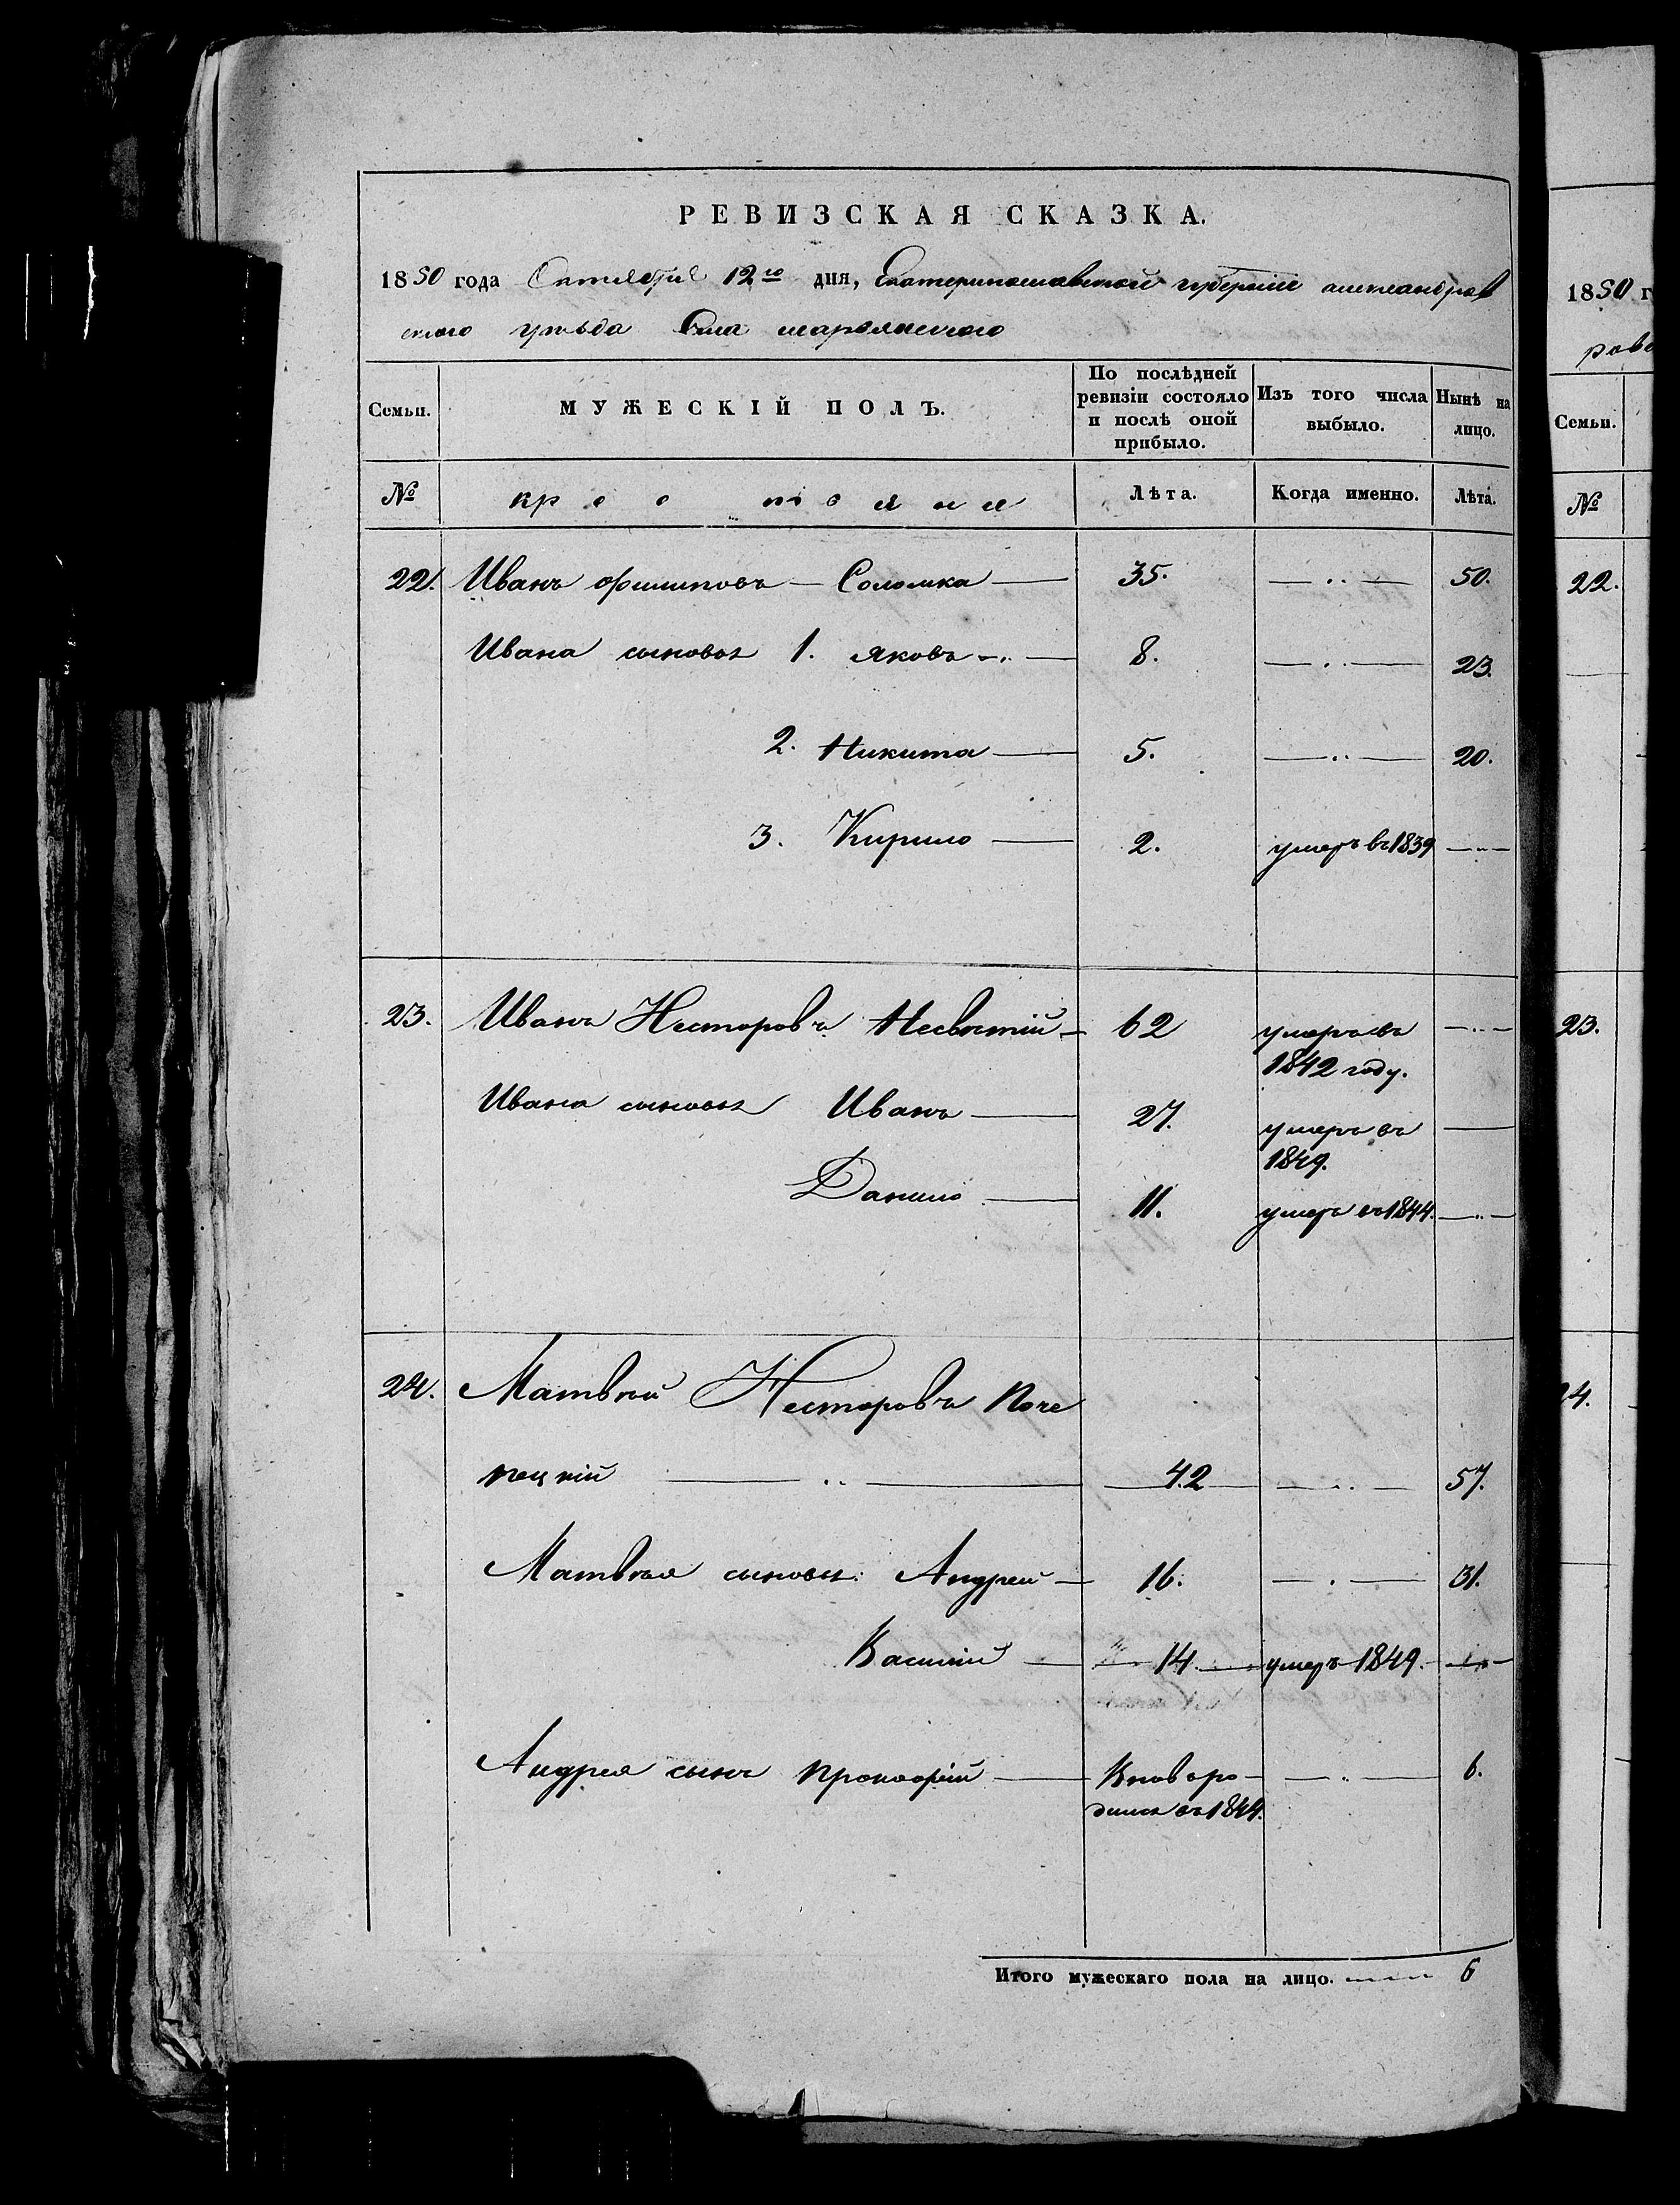 РЕВИЗСКАЯ СКАЗКА.
1850 года Октября 12го дня, Екатеринославской губерніи александров
ского уѣзда села
Семьи.
МУЖЕСКІЙ ПОЛЪ.
По послѣдней ревизіи состояло и послѣ оной прибыло.
Изъ того числа выбыло.
Нынѣ на лицо.
№
Лѣта.
Когда именно.
Лѣта.
22. Иванъ Филиповъ — Соломка — 35. — .. — 50.
Ивана сыновья 1. Яковъ — .. — 8. — . — 23.
2. Никита — 5. — .. — 20.
3. Кирило — 2. умеръ въ 1839 — .. —
23. Иванъ Несторовъ Несвятій — 62 умеръ въ — .. —
1842 году.
Ивана сыновья Иванъ — 27. умеръ въ —
1849.
Данило — 11. умеръ въ 1844. — .. —
24. Матвѣй Несторовъ Поче
пецкій — .. — 42 — .. — 57.
Матвѣя сыновья: Андрей — 16. — . — 31.
Василій — 14 — умеръ 1849. — .. —
Андрея сынъ Прокофій — вновь ро- — .. — 6.
дился въ 1844.
Итого мужескаго пола на лицо. 6
1850 г
рове
Семьи.
№
22.
23.
24.